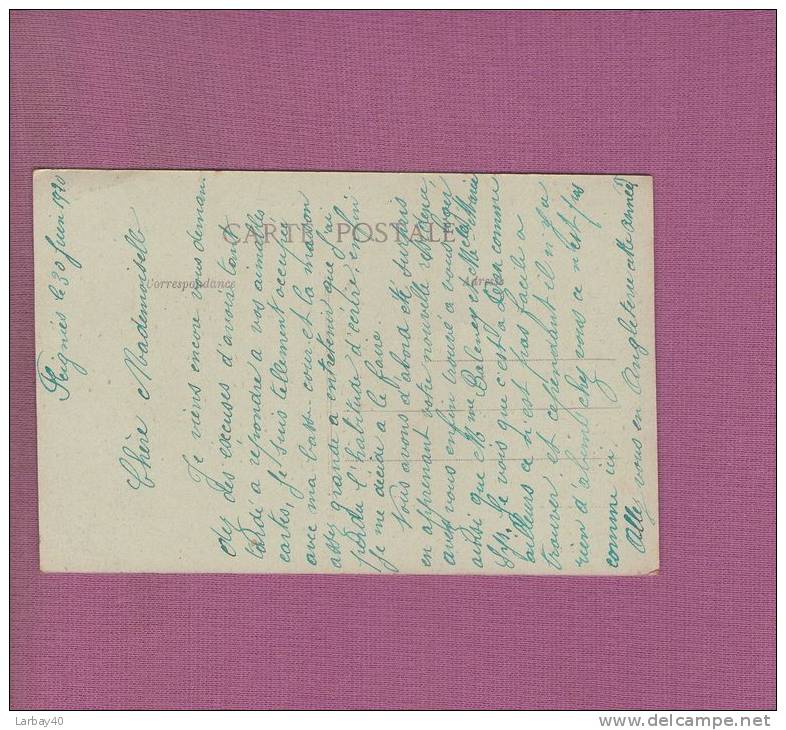 Feignies le 30 Juin 1920
Chère Mademoiselle
Je viens encore vous deman
der des excuses d'avoir tant
tardé a répondre a vos aimables
cartes, je suis tellement occupée
avec ma basse-cour et la maison
assez grande a entretenir que j'ai
perdu l'habitude d'écrire, enfin
je me décide a le faire.
Nous avons d'abord été surpris
en apprenant votre nouvelle résidence,
avez vous enfin trouvé a vous loger
ainsi que Mme et Melle Marie
je vous que c'est a comme
ailleurs ce n'est pas facile a
trouver et cependant il n'y a
rien d'abimé chez vous ce n'est pas
comme ici.
Allez vous en Angleterre cette année
CARTE POSTALE
Correspondance
Adresse
Larbay40
www.delcampe.net